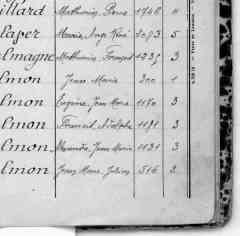 illard Mathurin, Pierre 1748 11
laper Marie, Ange René 3093 5
lmagne Mathurin François 1237 3
lmon Jean Marie 300 1
lmon Eugène, Jean Marie 1170 3
lmon Francis, Adolphe 1171 3
lmon Alexandre, Jean Marie 1131 3
lmon Jean, Marie, Julien 516 2